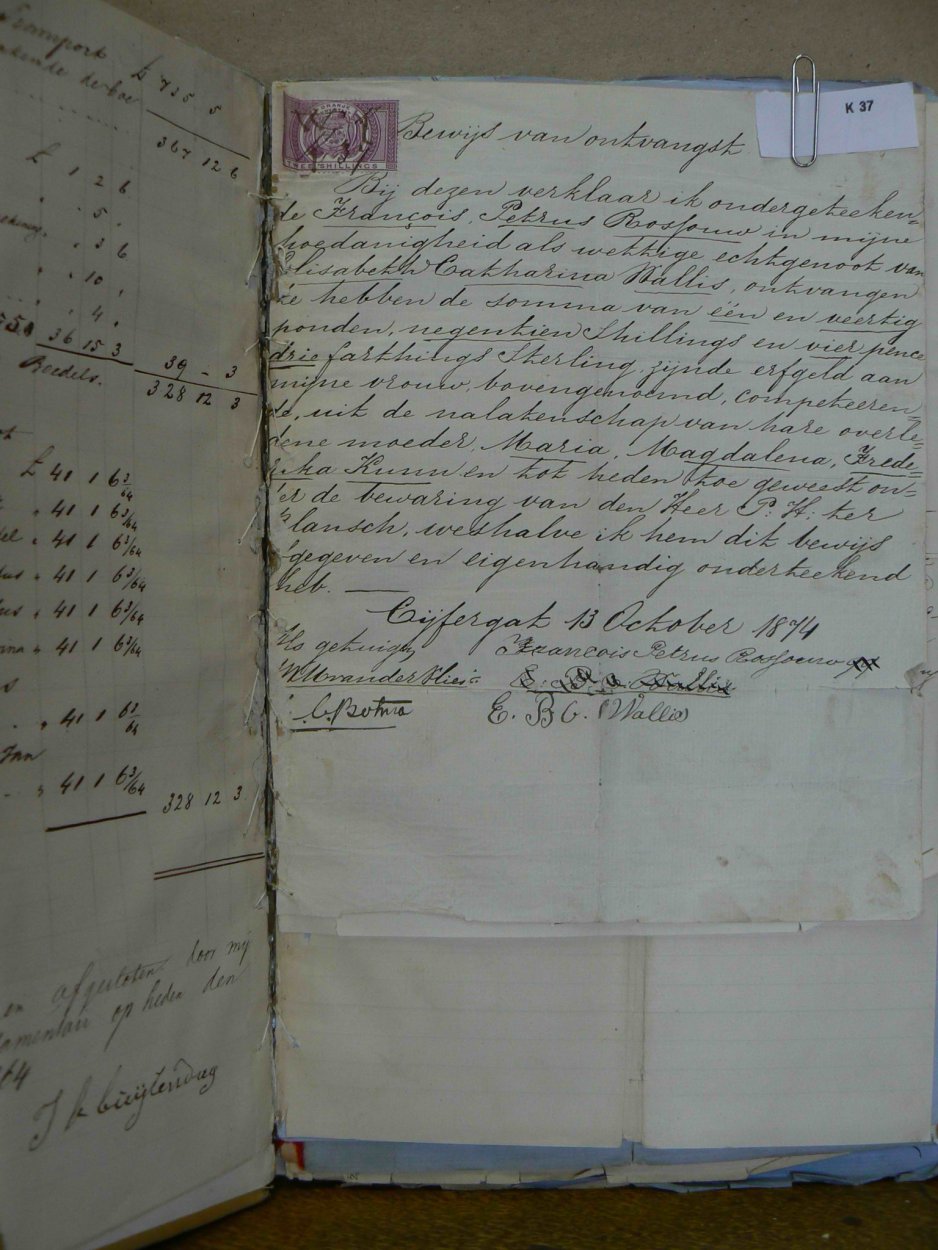 Transport £ 735 5
de boe
367 12 6
£ 1 2 6
" 5 "
" 3 6
" 10 "
" 4 "
36 15 3
39 - 3
Boedels.
328 12 3
£ 41 1 6 3/64
" 41 1 6 3/64
" 41 1 6 3/64
" 41 1 6 3/64
" 41 1 6 3/64
" 41 1 6 3/64
" 41 1 6 3/64
" 41 1 6 3/64
328 12 3
en afgesloten door mij
op heden den
64
K 37
ORANJE
TWEE SHILLINGS
Bewijs van ontvangst
Bij dezen verklaar ik ondergeteeken=
de François, Petrus Rossouw in mijne
hoedanigheid als wettige echtgenoot van
Elisabeth Catharina Wallis, ontvangen
te hebben de somma van één en veertig
ponden, negentien Shillings en vier pence
drie farthings Sterling, zijnde erfgeld aan
mijne vrouw, bovengenoemd, competeeren=
de, uit de nalatenschap van hare overle=
dene moeder, Maria, Magdalena, Frede=
rika Kunn en tot heden toe geweest on=
der de bewaring van den Heer P. H. ter
lansch, weshalve ik hem dit bewijs
gegeven en eigenhandig onderteekend
heb. —
Cijfergat 13 October 1874
Als getuigen
François Petrus Rossouw
C. Botma
E. B C. Wallis